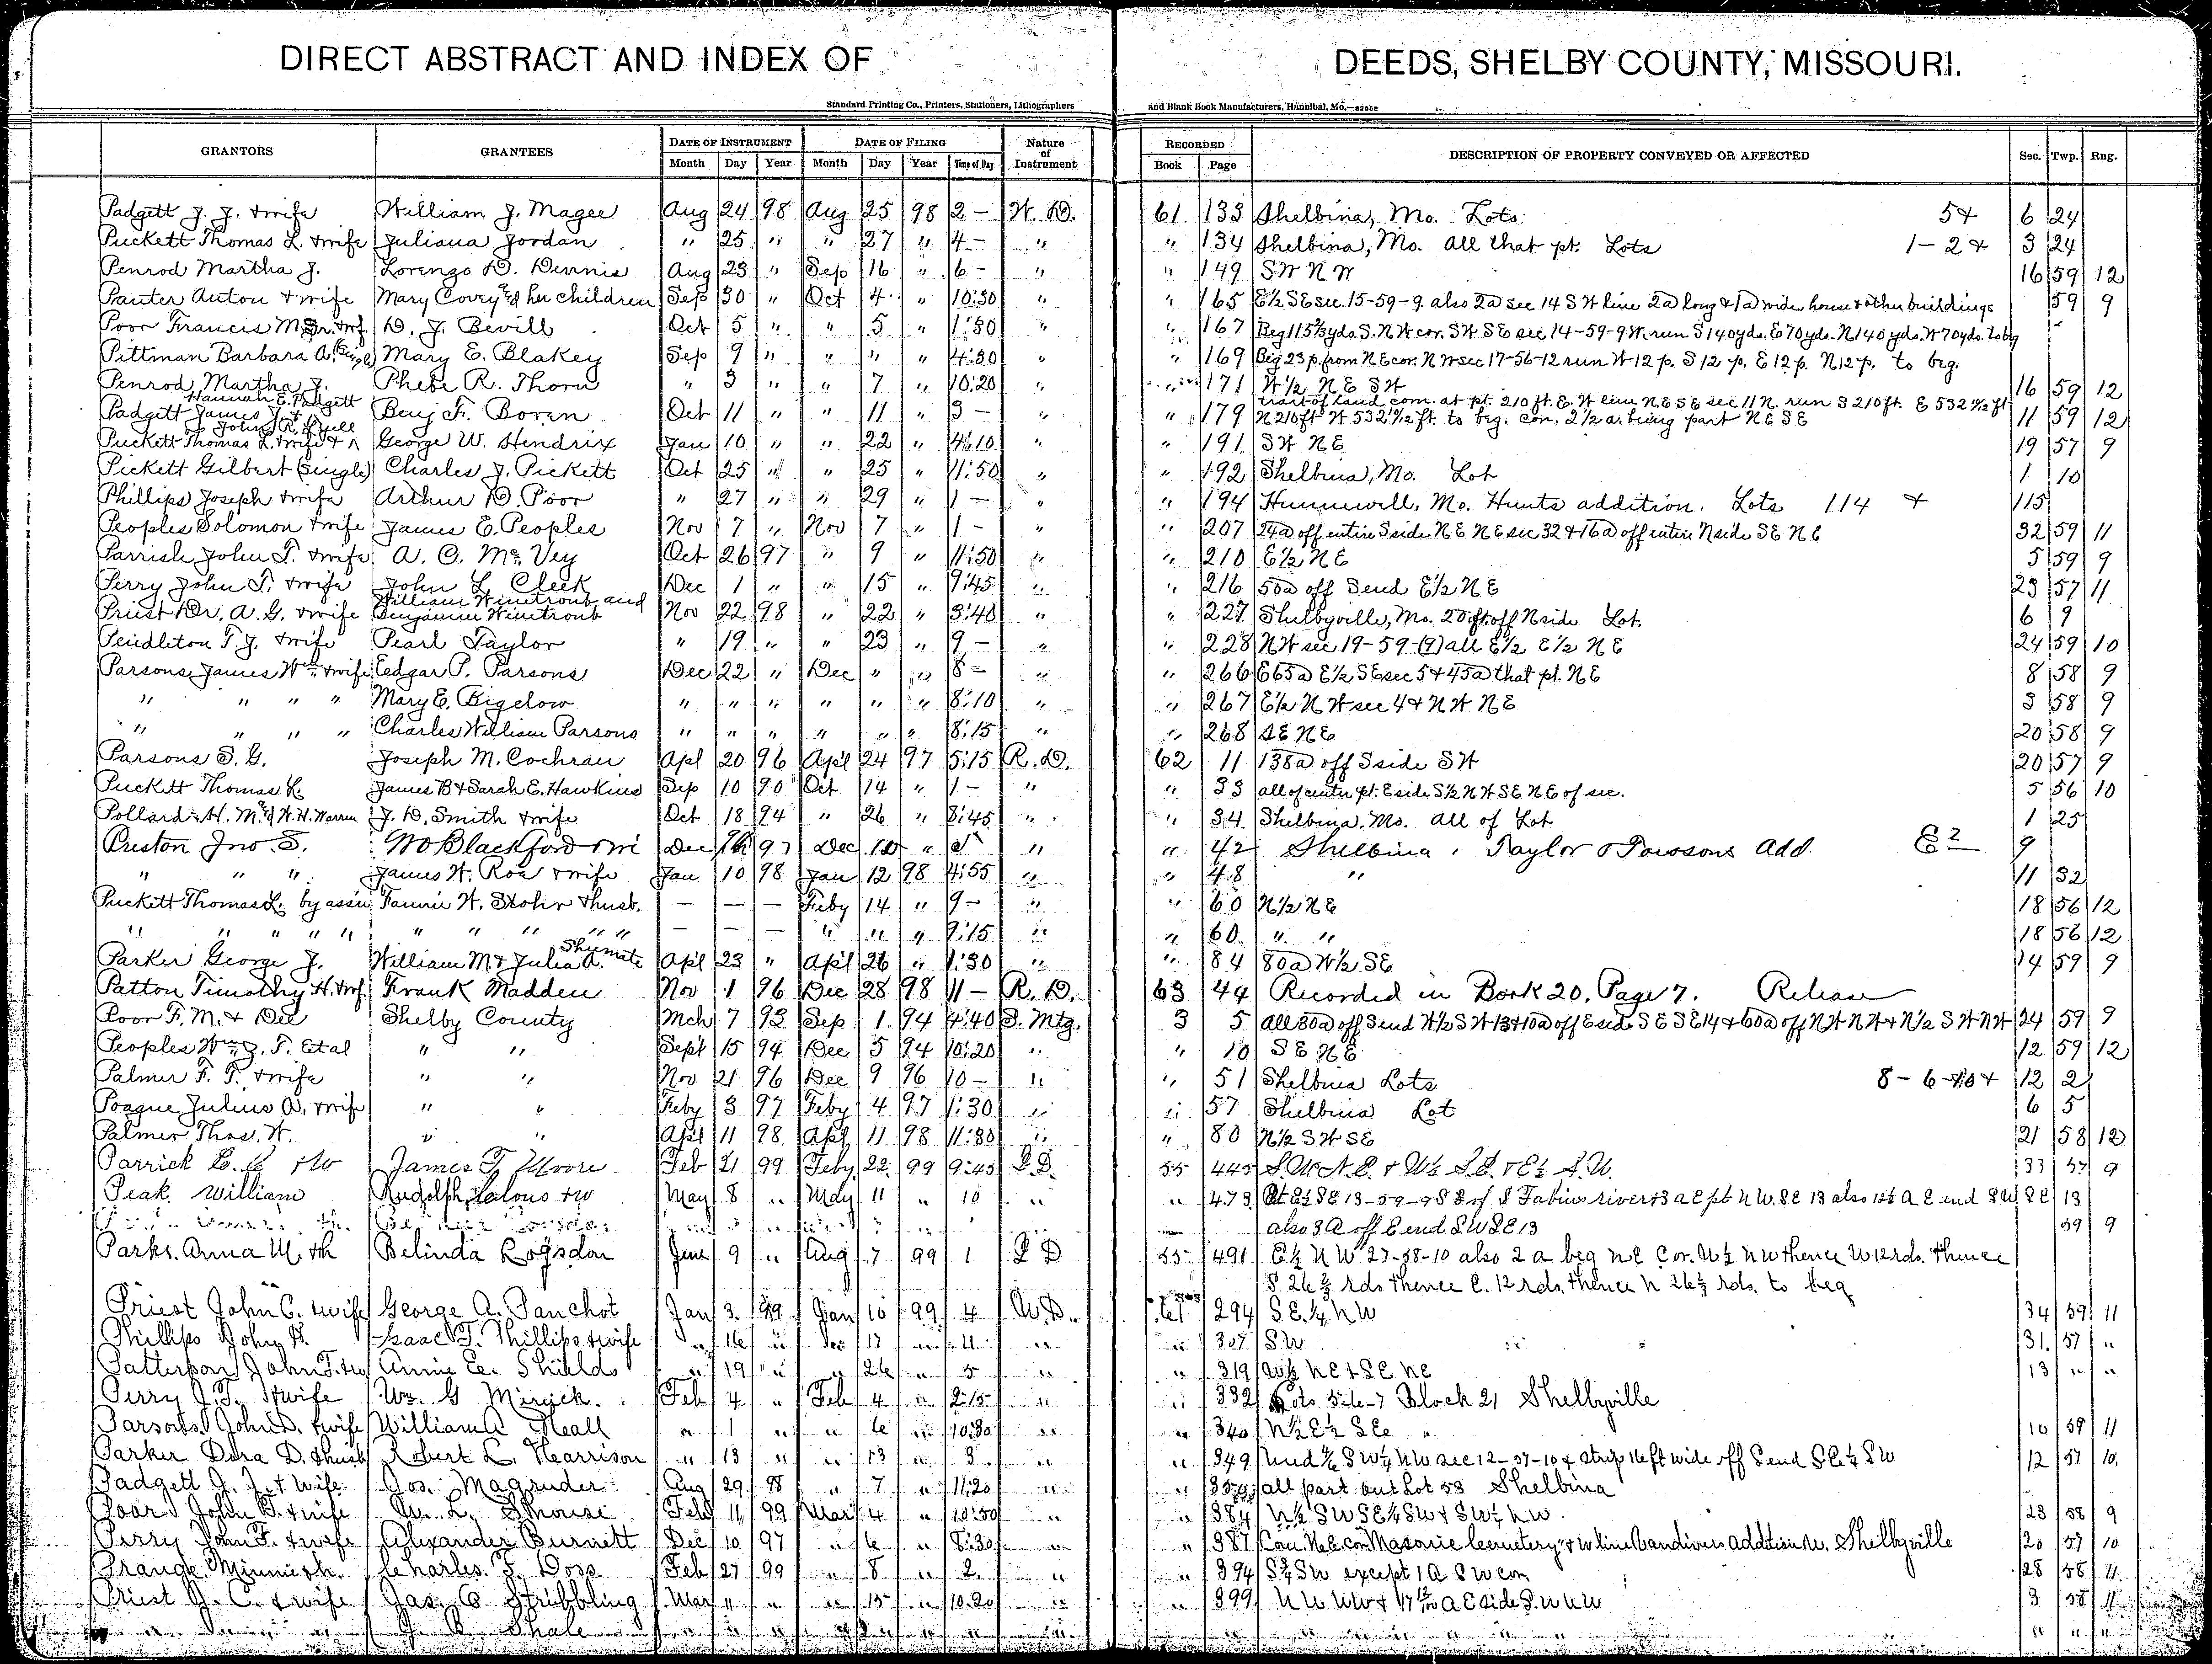 DIRECT ABSTRACT AND INDEX OF DEEDS, SHELBY COUNTY, MISSOURI.
Standard Printing Co., Printers, Stationers, Lithographers and Blank Book Manufacturers, Hannibal, Mo.—82058
GRANTORS GRANTEES DATE OF INSTRUMENT DATE OF FILING Nature of Instrument RECORDED DESCRIPTION OF PROPERTY CONVEYED OR AFFECTED Sec. Twp. Rng.
Month Day Year Month Day Year Time of Day Book Page
Padgett J. J. & wife William J. Magee Aug 24 98 Aug 25 98 2 — W. D. 61 133 Shelbina, Mo. Lots 5 & 6 24
Puckett Thomas L. & wife Juliana Jordan " 25 " " 27 " 4 — " " 134 Shelbina, Mo. all that pt. Lots 1 - 2 & 3 24
Penrod Martha J. Lorenzo D. Dennis Aug 23 " Sep 16 " 6 — " " 149 SW NW 16 59 12
Panter Anton & wife Mary Covey & her children Sep 30 " Oct 4 " 10:30 " " 165 E½ SE sec. 15-59-9. also 2a sec 14 SW line 2a long & 1a wide, house & other buildings 59 9
Poor Francis M. Sr. & wf. D. J. Bevill Oct 5 " " 5 " 1:30 " " 167 Beg 115⅔ yds. S. NW cor. SW SE sec 14-59-9 W. run S 140 yds. E 70 yds. N 140 yds. W 70 yds. to beg
Pittman Barbara A. (Single) Mary E. Blakey Sep 9 " " " " 4:30 " " 169 Beg 23 p. from NE cor. NW sec 17-56-12 run W 12 p. S 12 p. E 12 p. N 12 p. to beg.
Penrod, Martha J. Phebe R. Thorn " 3 " " 7 " 10:20 " " 171 W½ NE SW 16 59 12
Padgett James J. & Hannah E. Padgett Benj F. Boren Oct 11 " " 11 " 3 — " " 179 tract of land com. at pt. 210 ft. E. W line NE SE sec 11 N. run S 210 ft. E 532 1/2 ft
N 210 ft W 532 1/2 ft. to beg. con. 2 1/2 a. being part NE SE 11 59 12
Puckett Thomas L. & wife & George W. Hendrix Jan 10 " " 22 " 4:10 " " 191 SW NE 19 57 9
Pickett Gilbert (Single) Charles J. Pickett Oct 25 " " 25 " 11:50 " " 192 Shelbina, Mo. Lot 1 10
Phillips Joseph & wife Arthur D. Poor " 27 " " 29 " 1 — " " 194 Hunnewell, Mo. Hunts addition. Lots 114 & 115
Peoples Solomon & wife James E. Peoples Nov 7 " Nov 7 " 1 - " " 207 24a off entire S side NE NE sec 32 & 16a off entire N side SE NE 32 59 11
Parrish John T. & wife A. C. McVey Oct 26 97 " 9 " 11:50 " " 210 E½ NE 5 59 9
Perry John T. & wife John L. Cleek Dec 1 " " 15 " 9:45 " " 216 50a off S end E½ NE 23 57 11
Priest Dr. A. G. & wife William Winetroub and Benjamin Winetroub Nov 22 98 " 22 " 3:40 " " 227 Shelbyville, Mo. 20 ft. off N side Lot. 6 9
Pendleton T. J. & wife Pearl Taylor " 19 " " 23 " 9 — " " 228 NW sec 19-59-(9) all E½ E½ NE 24 59 10
Parsons, James Wm. & wife Eedgar P. Parsons Dec 22 " Dec " " 8 — " " 266 E 65a E½ SE sec 5 & 45a that pt. NE 8 58 9
" " " " Mary E. Bigelow " " " " " " 8:10 " " 267 E½ NW sec 4 & NW NE 3 58 9
" " " " Charles William Parsons " " " " " " 8:15 " " 268 SE NE 20 58 9
Parsons S. G. Joseph M. Cochran Apl 20 96 Apl 24 97 5:15 R. D. 62 11 138a off S side SW 20 57 9
Puckett Thomas L. James B & Sarah E. Hawkins Sep 10 90 Oct 14 " 1 — " " 33 all of center pt. E side S½ NW SE NE of sec. 5 56 10
Pollard H. M. & W. H. Warren J. D. Smith & wife Oct 18 94 " 26 " 8:45 " " 34 Shelbina, Mo. all of Lot 1 25
Preston Jno. S. WO Blackford & wi Dec 97 Dec 10 " " " 42 Shelbina, Taylor & Towsons Add. E 2 9
" " " James W. Roe & wife Jan 10 98 Jan 12 98 4:55 " " 48 " 11 32
Puckett Thomas L. by assn Fannie W. Stohr & husb. — — — Feby 14 " 9 — " " 60 N½ NE 18 56 12
" " " " " " " " " — — — " " " 9:15 " " 60 " " 18 56 12
Parker George J. William M. & Julia A. Shumate Apl 23 " Apl 26 " 1:30 " " 84 80a W½ SE 14 59 9
Patton Timothy H. & wf. Frank Madden Nov 1 96 Dec 28 98 11 — R. D. 63 44 Recorded in Book 20, Page 7. Release
Poor F. M. & Dee Shelby County Mch 7 93 Sep 1 94 4:40 S. Mtg. 3 5 all 80a off S end W½ SW 13 & 10a off E side SE SE 14 & 60a off NW NW & N½ SW NW 24 59 9
Peoples Wm. J. T. Etal " " Sept 15 94 Dec 5 94 10:20 " " 10 SE NE 12 59 12
Palmer F. P. & wife " " Nov 21 96 Dec 9 96 10 — " " 51 Shelbina Lots 8 - 6 - 10 & 12 2
Poague Julius A. & wife " " Feby 3 97 Feby 4 97 1:30 " " 57 Shelbina Lot 6 5
Palmer Thos. W. " " Apl 11 98 Apl 11 98 11:30 " " 80 N½ SW SE 21 58 12
Parrick &W James T. Moore Feb 21 99 Feby 22 99 9:45 55 445 S.W. N.E. & W½ S.E. & E½ S.W. 33 57 9
Peak William Rudolph & w May 8 " May 11 " 10 " " 473 Pt E½ SE 13-59-9 S Fabius river & 3 a E pt NW. SE 13 also 12½ A E end SW SE 13
also 3 a off E end SW SE 13 59 9
Parks. Anna M. & h Belinda Rogsdon June 9 " Aug 7 99 1 55 491 E½ NW 27-58-10 also 2 a beg NE Cor. W½ NW thence W 12 rds. thence
S 26⅔ rds thence E. 12 rds. thence N 26⅔ rds. to beg
Priest John C. & wife George A. Panchot Jan 3 99 Jan 10 99 4 W.D. 61 294 S.E. 1/4 NW 34 59 11
Phillips John H. Isaac T. Phillips & wife " 16 " 17 " 11 " " 307 S.W. 31 57 "
Patterson John T. & w Annie E. Shields " 19 " " 26 " 5 " " 319 W½ NE & SE NE 13 " "
Perry J. T. & wife Wm. G Mirick. Feb 4 " Feb 4 " 2:15 " " 332 Lots 5-6-7 Block 21 Shelbyville
Parsons John D. & wife William A Heall " 1 " " 6 " 10:30 " " 340 N½ E½ SE 10 59 11
Parker Dora D. & husb Robert L. Harrison " 13 " " 13 " 3 " " 349 Und 1/6 SW¼ NW sec 12-57-10 & strip 16 ft wide off S end SE¼ SW 12 57 10
Padgett J. J. & wife Jos. Magruder Aug 29 98 " 7 " 11:20 " " all part out Lot 53 Shelbina
Poar John T. & wife L. Shouse Feb 11 99 Mar 4 " 10:50 " " 384 N½ SW SE¼ SW & SW¼ NW 23 58 9
Perry John T. & wife Alexander Burnett Dec 10 97 " 6 " 8:30 " " 387 Com. N.E. cor Masonic Cemetery & W line Vandivers addition Shelbyville 20 57 10
Prange Minnie & h. Charles. F. Doss Feb 27 99 " 8 " 2 " " 394 S½ SW except 1 A SW cor 28 58 11
Priest J. C. & wife Jas. C Stribbling Mar 11 " " 15 " 10.20 " " 399 NW NW & 17 a E side S.W NW 3 58 11
" " " " J. B. Shale " " " " " " " " " " " " "